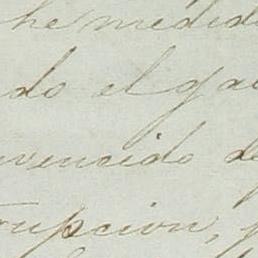 he medid
do el ga
vencido de
rupcion,